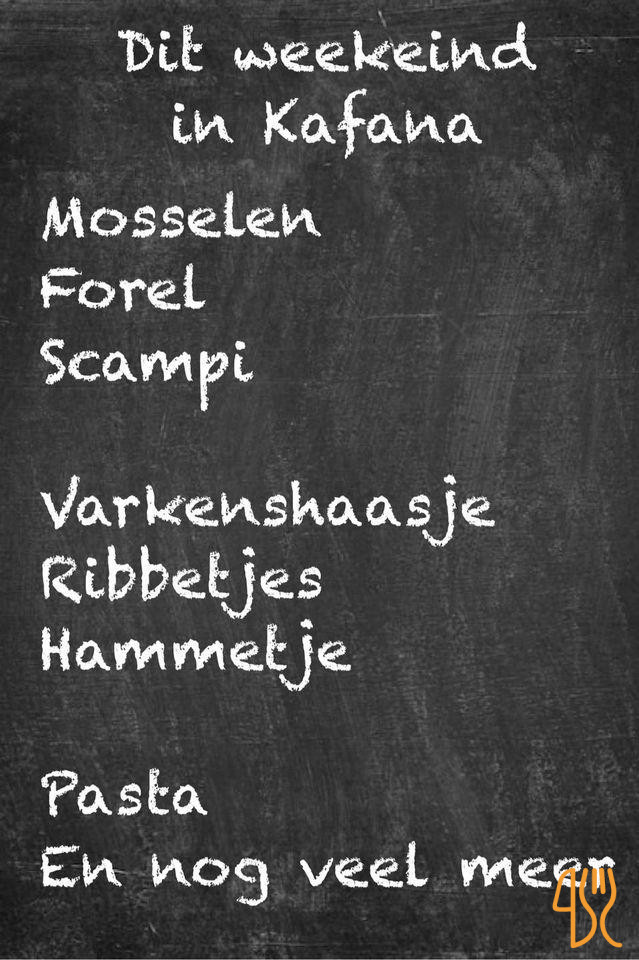 Dit weekeind
in Kafana
Mosselen
Forel
Scampi
Varkenshaasje
Ribbetjes
Hammetje
Pasta
En nog veel meer